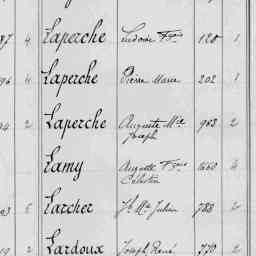 87 4 Laperche Ludovic Fçois 128 1
96 4 Laperche Pierre Marie 202 1
94 2 Laperche Auguste Mie 963 2
Joseph
Lamy Auguste Fçois 1660 4
Célestin
03 5 Larcher Jh Mie Julien 788 2
19 2 Lardoux Joseph René 770 2